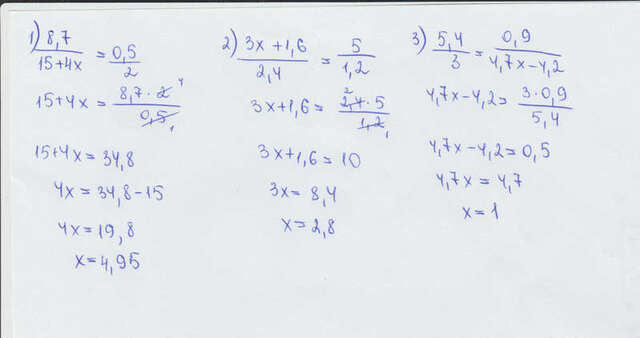 1) 8,7 / (15+4x) = 0,5 / 2
15+4x = 8,7 · 2 4 / 0,5 1
15+4x = 34,8
4x = 34,8-15
4x = 19,8
x = 4,95
2) (3x+1,6) / 2,4 = 5 / 1,2
3x+1,6 = 2 2,4 · 5 / 1,2 1
3x+1,6 = 10
3x = 8,4
x = 2,8
3) 5,4 / 3 = 0,9 / (4,7x-4,2)
4,7x-4,2 = 3·0,9 / 5,4
4,7x-4,2 = 0,5
4,7x = 4,7
x = 1